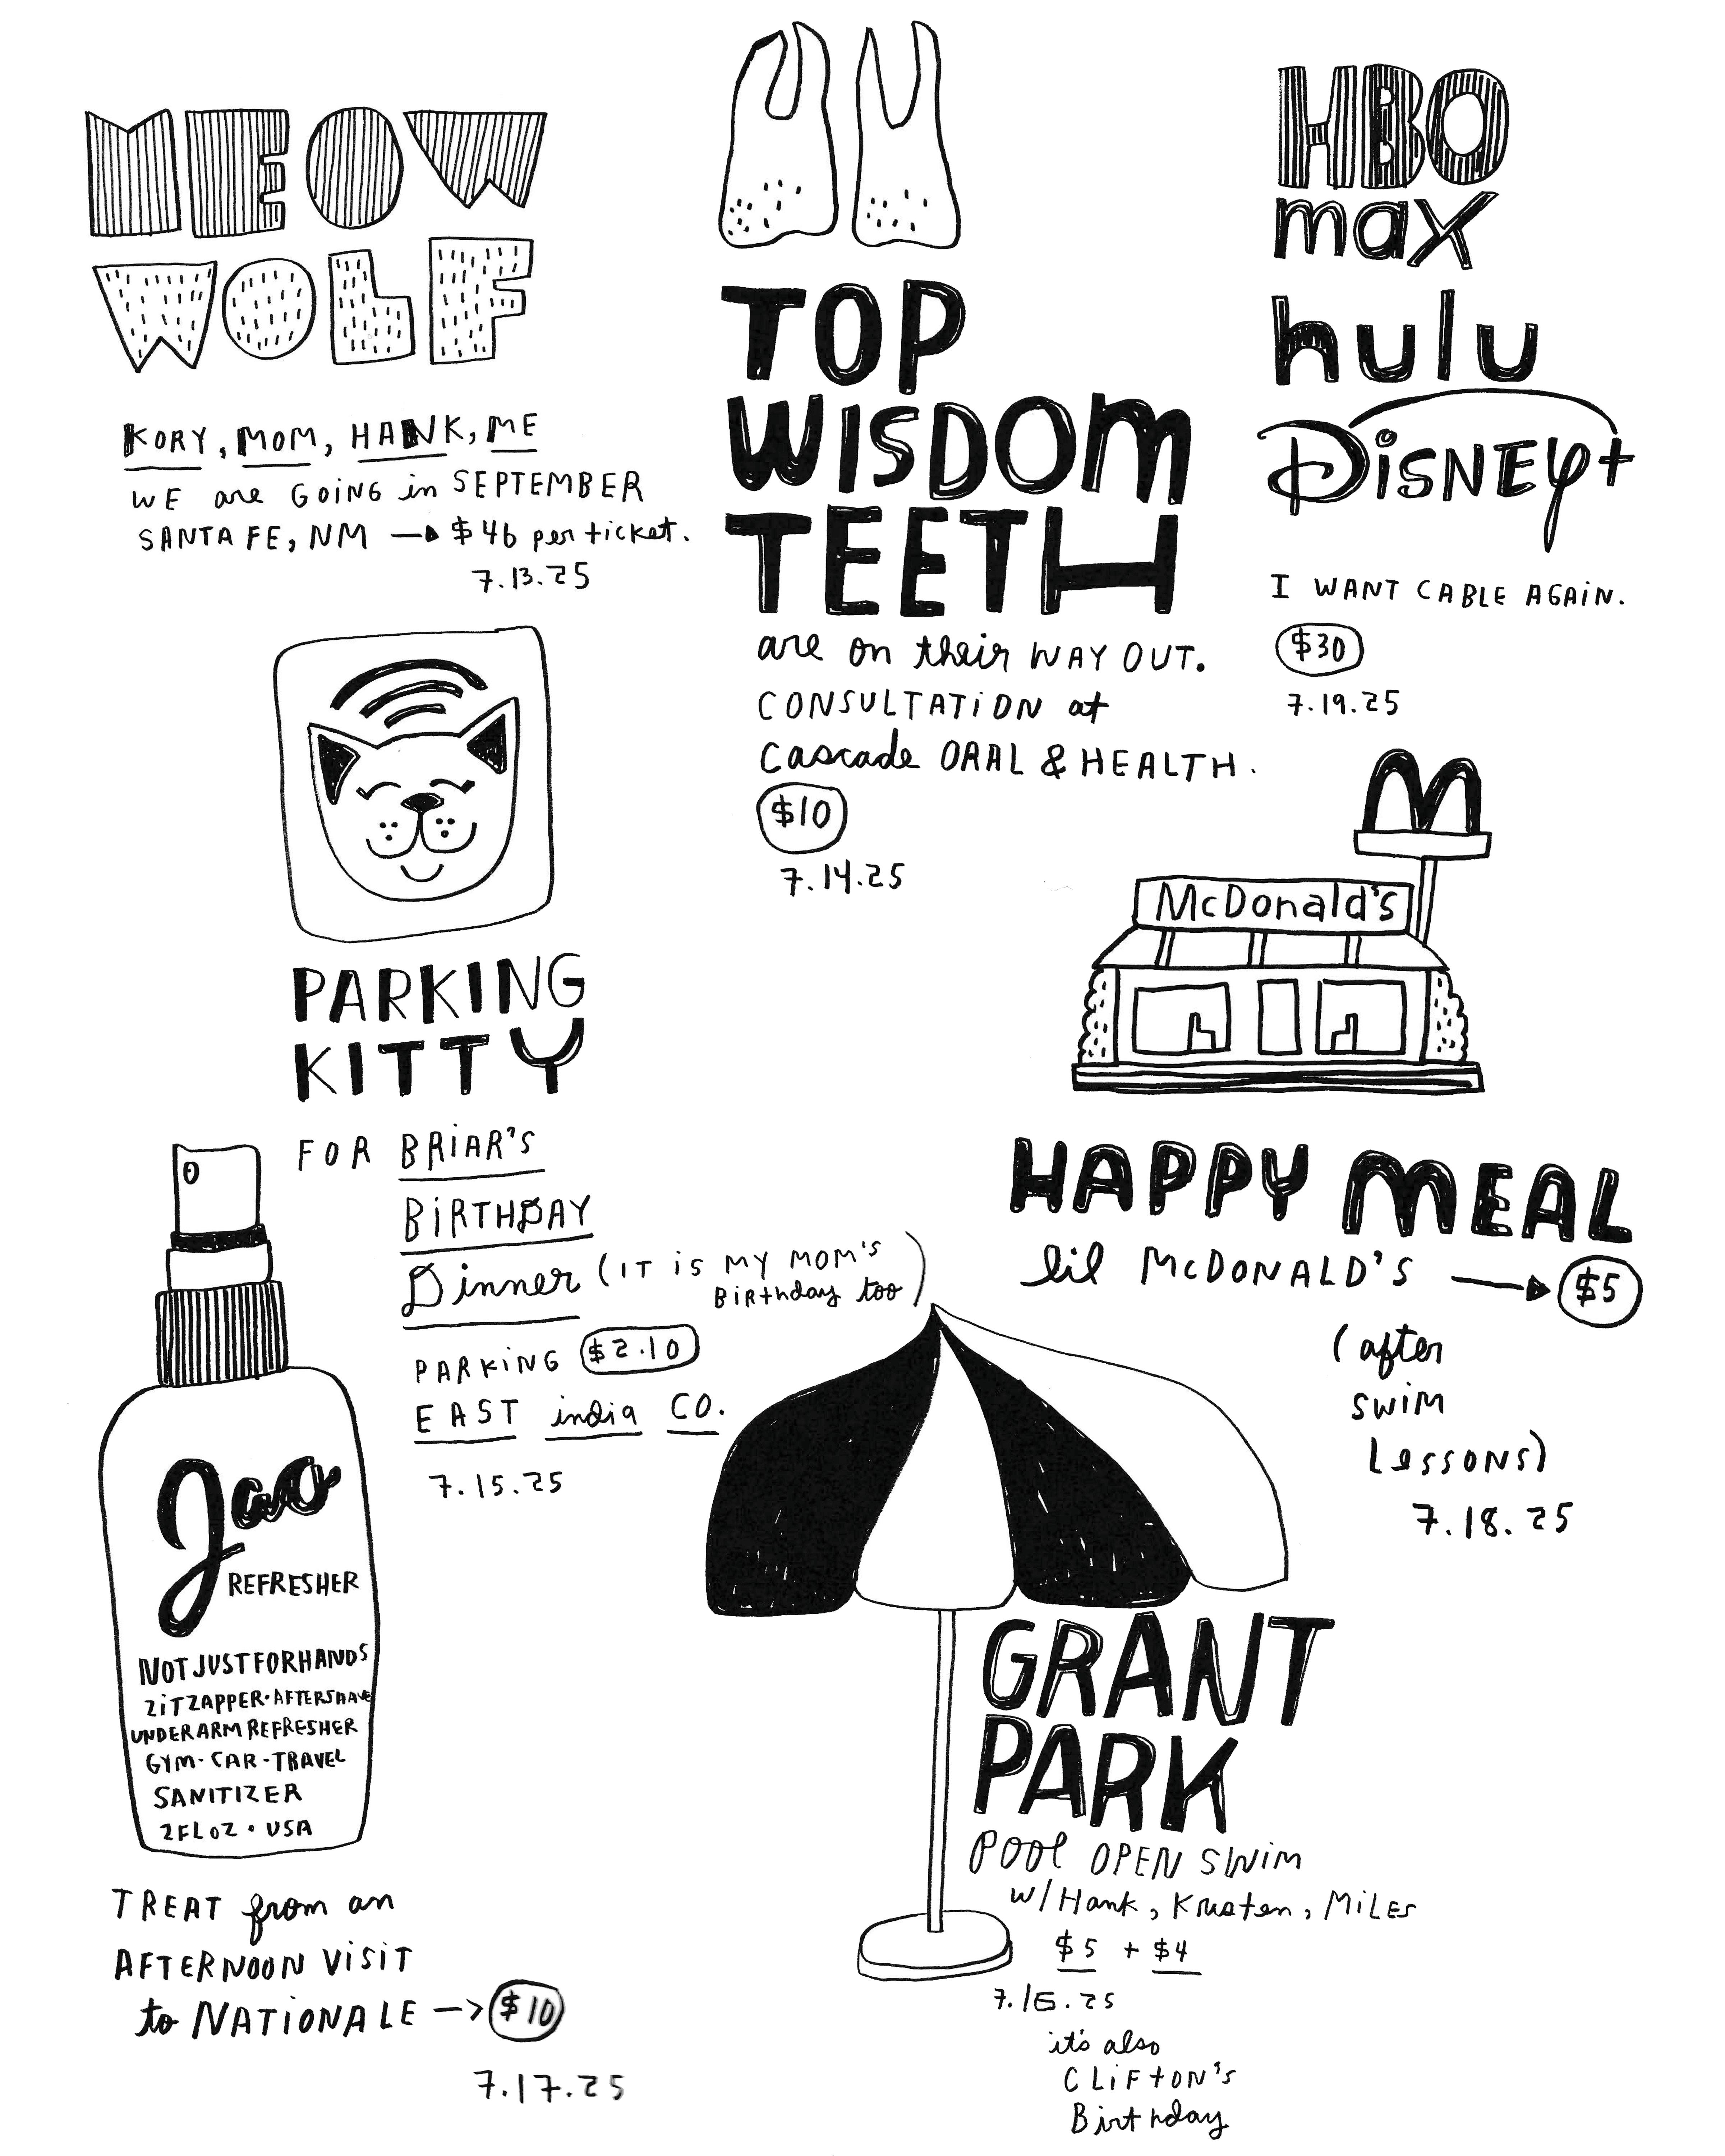 MEOW
WOLF
KORY, MOM, HANK, ME
WE are GOING in SEPTEMBER
SANTA FE, NM → $46 per ticket.
7.13.25
TOP
WISDOM
TEETH
are on their WAY OUT.
CONSULTATION at
Cascade ORAL & HEALTH.
$10
7.14.25
HBO
max
hulu
Disney+
I WANT CABLE AGAIN.
$30
7.19.25
PARKING
KITTY
FOR BRIAR'S
BIRTHDAY
Dinner (IT IS MY MOM'S
BIRthday too)
PARKING $2.10
EAST india CO.
7.15.25
M
McDonald's
HAPPY MEAL
lil McDONALD'S → $5
(after
swim
Lessons)
7.18.25
Jao
REFRESHER
NOT JUST FOR HANDS
ZIT ZAPPER · AFTERSHAVE
UNDERARM REFRESHER
GYM - CAR - TRAVEL
SANITIZER
2 FL OZ · USA
TREAT from an
AFTERNOON VISIT
to NATIONALE → $10
7.17.25
GRANT
PARK
POOL OPEN SWIM
w/ Hank, Kristen, MILES
$5 + $4
7.16.25
it's also
CLIFTON'S
Birthday